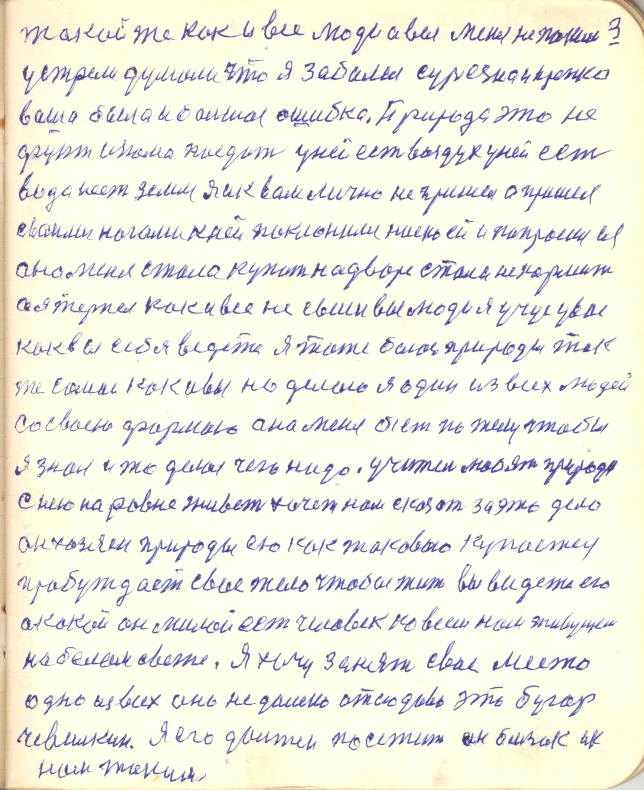 такой же как и все люди а вы меня не поняли 3
устрели думали что я заболел сурезна и крепко
ваша была и болшая ошибка. Природа это не
фрунт и дома поедат у ней ест воздух у ней ест
вода и ест земля я и к вам лично не пришел а пришел
своими ногами к ней поклонился низко ей и попросил ея
ана меня стала купат на дворе стала не кормит
а я терпел как и все не были вы люди я учус у вас
как вы себя ведете я тоже боюс природы так
же самое как и вы но делаю я один из всех людей
со своею формаю ана меня бьет по телу чтобы
я знал и то делал чего надо. учител любят природу
с нею на ровне живет хочет нам сказат за это дело
он хозяен природы ею как таковою купается
пробуждает свое тело чтобы жит вы видете его
а какой он милой ест человек ко всем нам живущем
на белом свете. Я хочу занят свое место
одно из всех оно не далеко отсюдова это бугор
чевилкин. Я его должен посетит он близок ик
нам таким